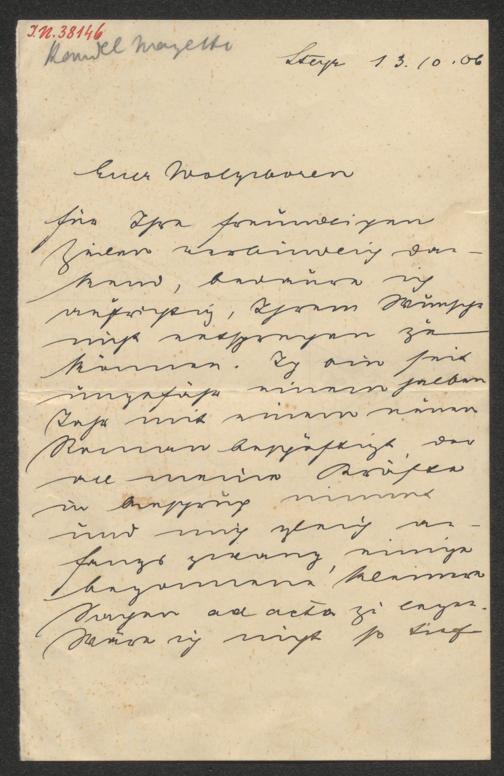 I.N. 38146
Handel Mazetti
Steyr 13.10.06
Euer Wolgeboren
für Ihre freundligen
Zeilen verbindlig dan-
kend, bedaure ig
aufrigtig, Ihrem Wunsche
nigt entspregen zu
können. Ig bin seit
ungefähr einem halben
Jahr mit einem neuen
Roman beschäftigt, der
all meine Kräfte
in Anspruch nimmt
und mig gleig an-
fangs zwang, einige
begonnene, kleinere
Sagen ad acta zu legen.
Wäre ig nigt so tief